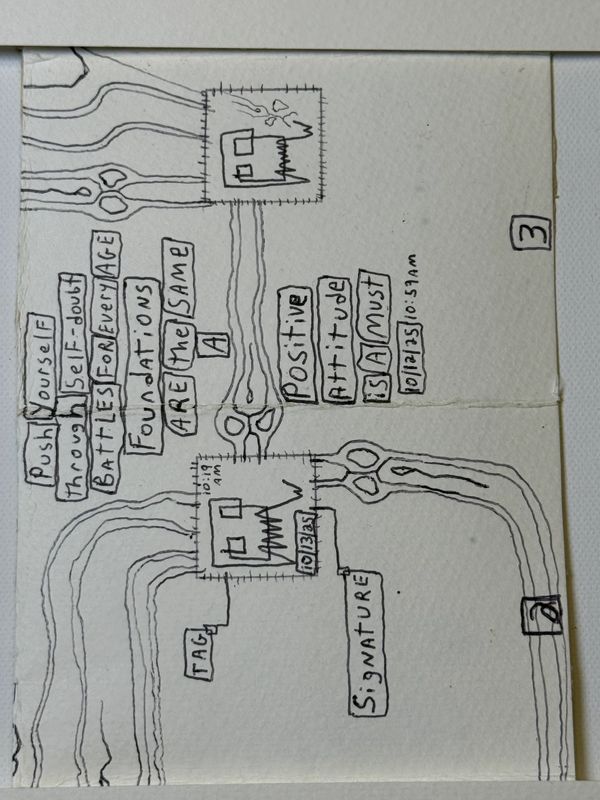 Push Yourself
through Self-doubt
BATTLES FOR Every AGE
FoundATIONS
ARE the SAME
A
POSitive
Attitude
is A MUST
10/12/25 10:59 AM
3
10:19
AM
W
10/13/25
W
TAG
SigNATURE
2